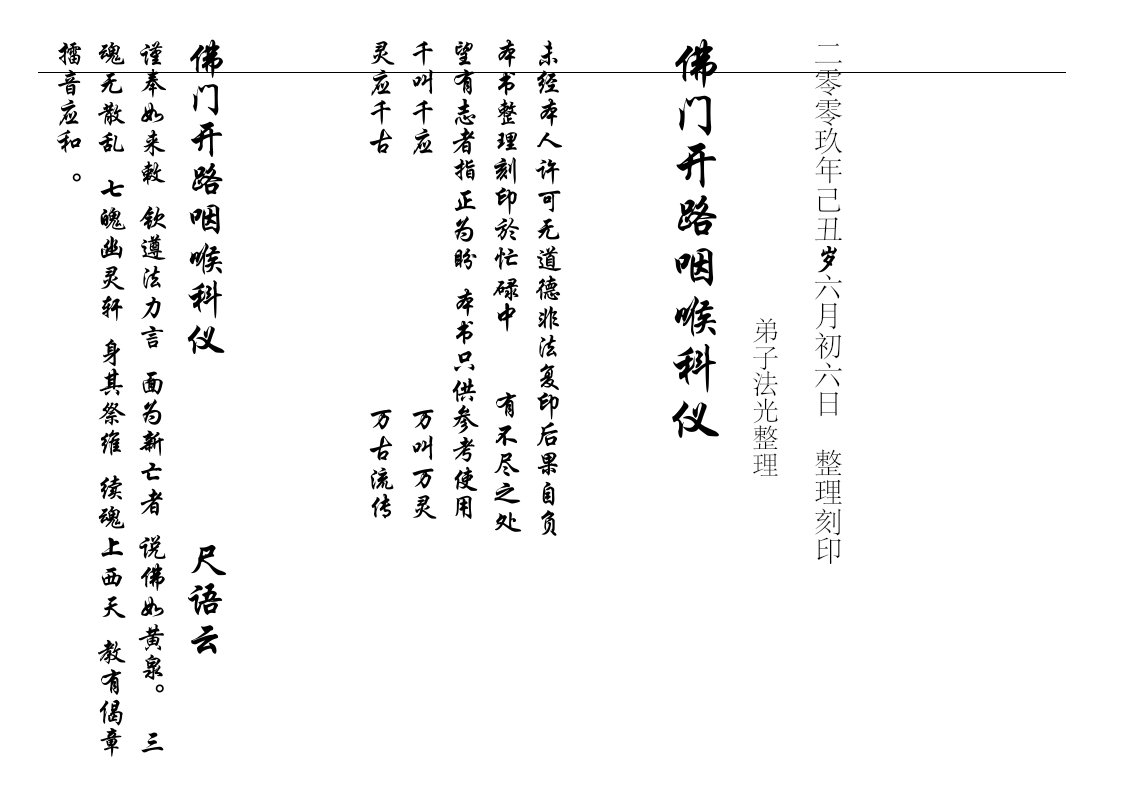 二零零玖年己丑岁六月初六日 整理刻印
弟子法光整理
佛门开路咽喉科仪
未经本人许可无道德非法复印后果自负
本书整理刻印於忙碌中 有不尽之处
望有志者指正为盼 本书只供参考使用
千叫千应 万叫万灵
灵应千古 万古流传
佛门开路咽喉科仪 尺语云
谨奉如来敕 钦遵法力言 面为新亡者 说佛如黄泉。 三
魂无散乱 七魄幽灵轩 身其祭维 续魂上西天 教有偈章
擂音应和。